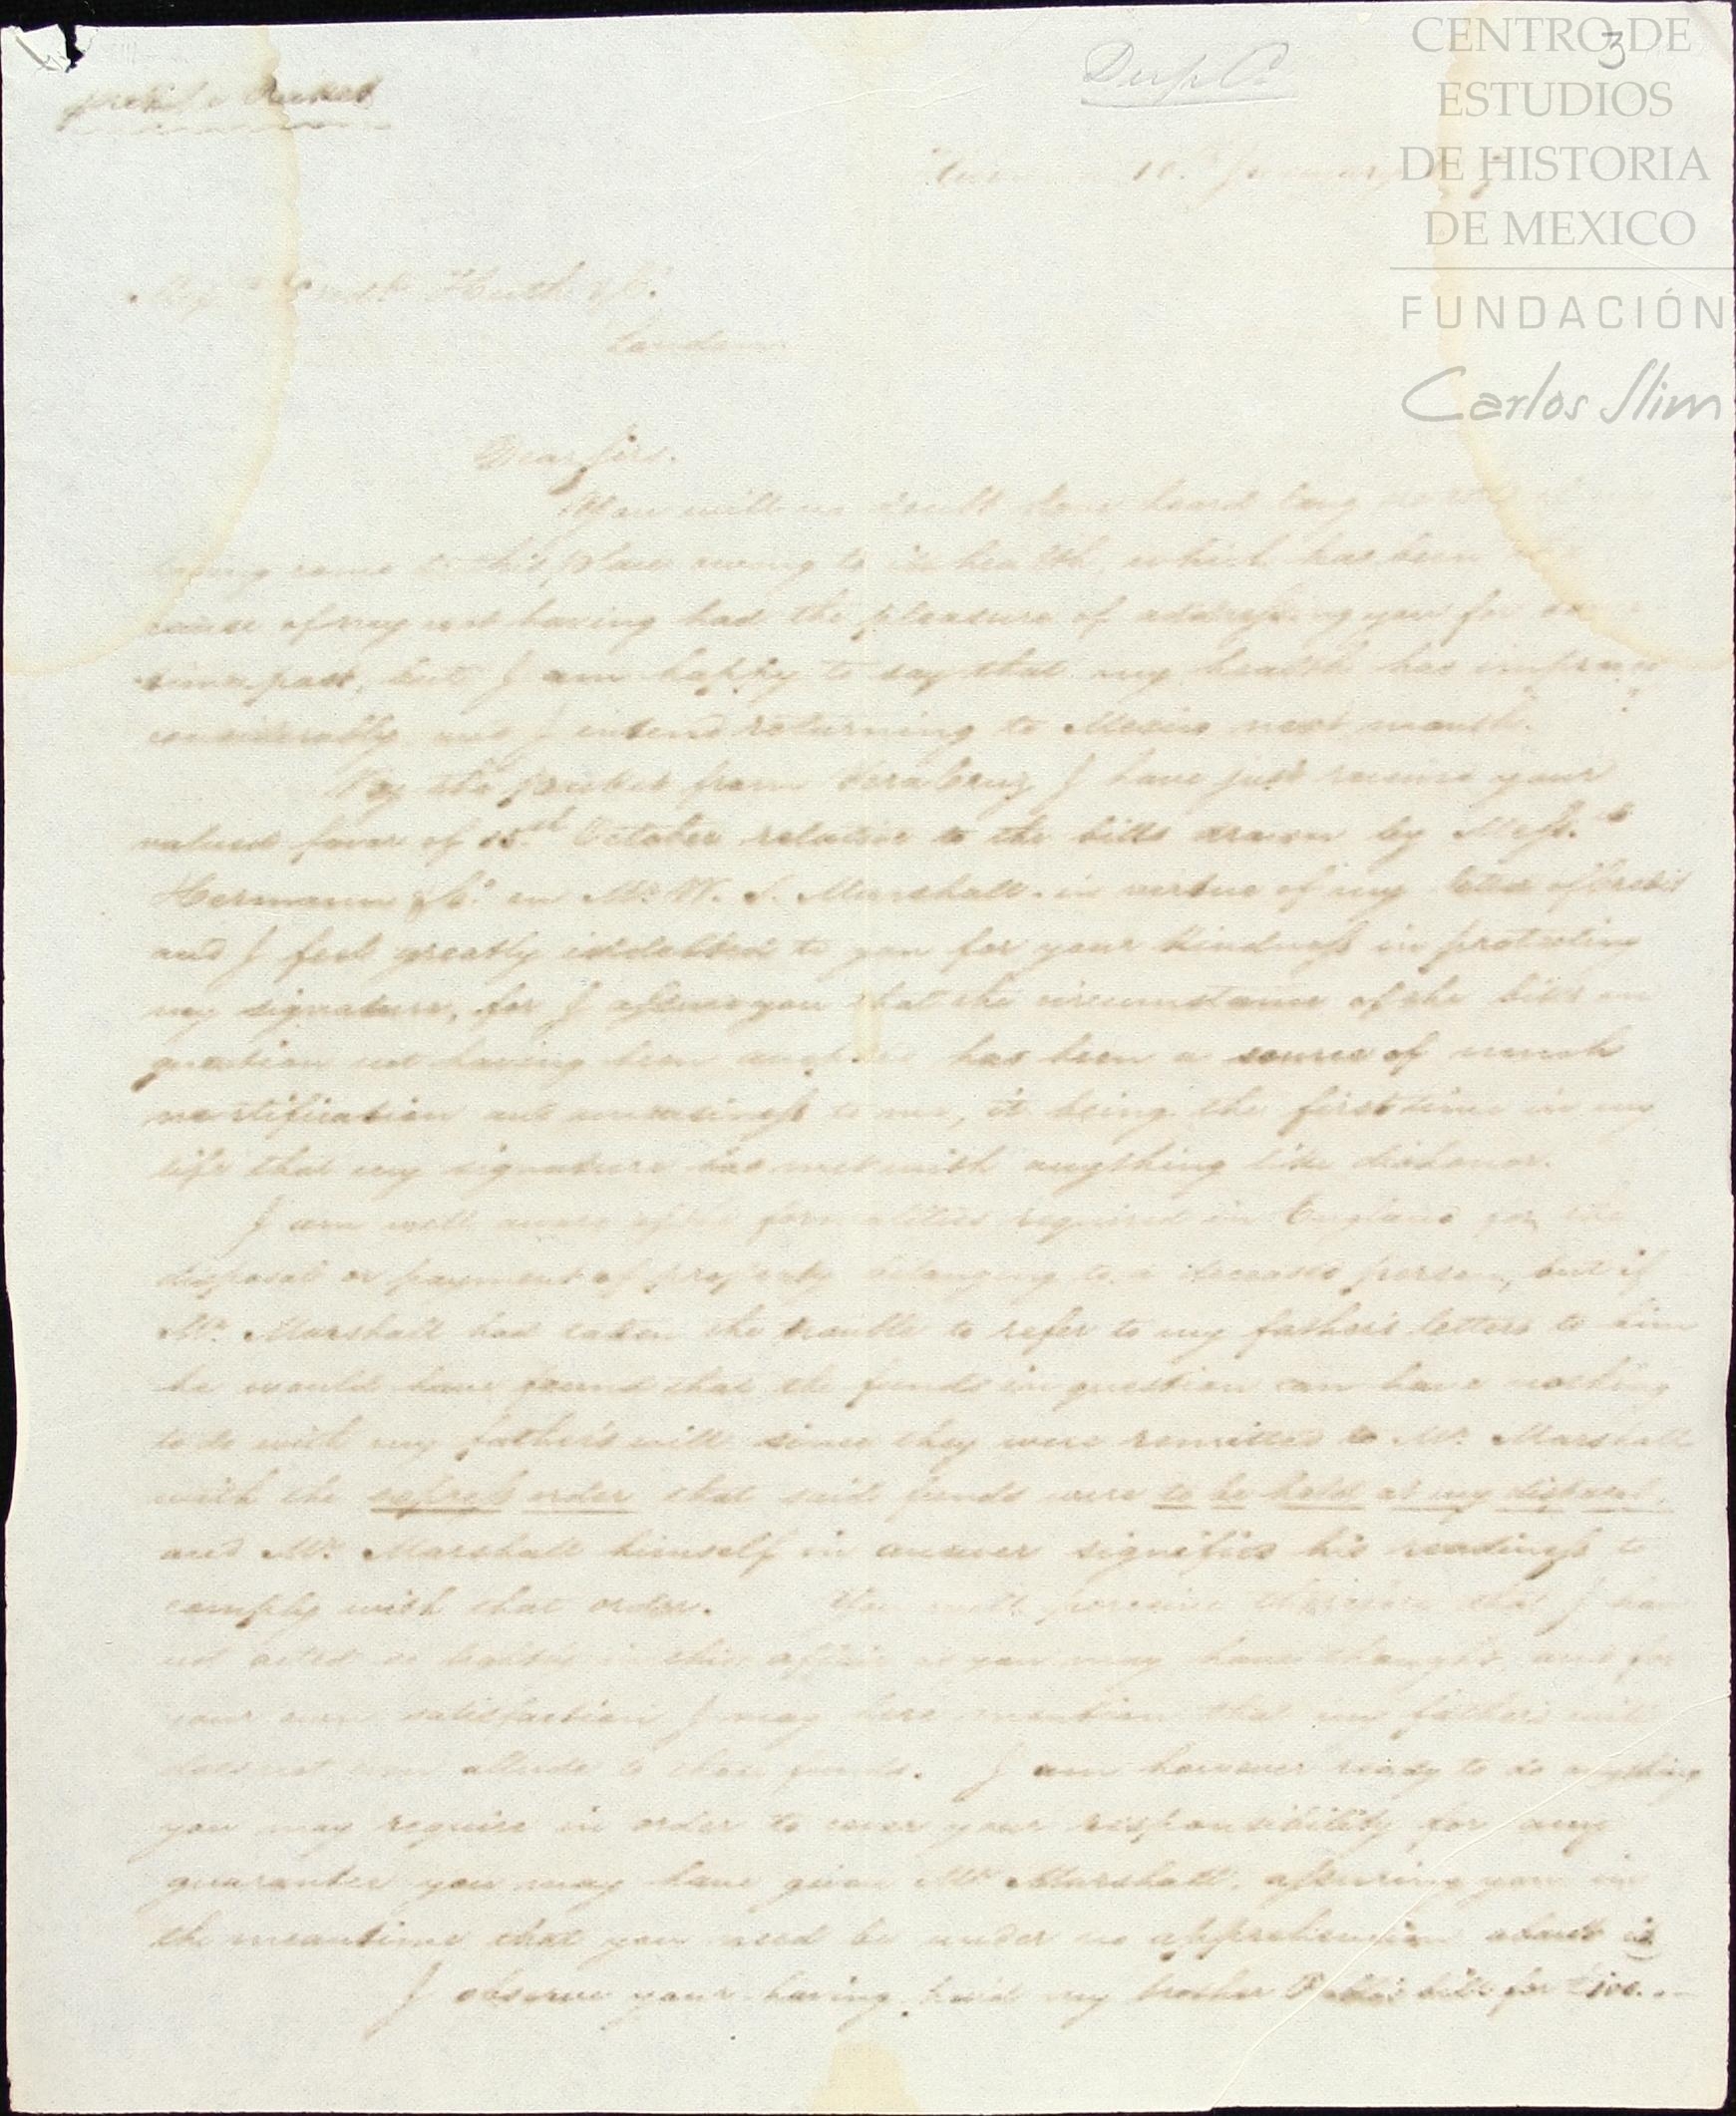 3
CENTRO DE
ESTUDIOS
DE HISTORIA
DE MEXICO
FUNDACIÓN
Carlos Slim
10th January
Fredk Huth & Co.
London
Dear Sirs.
You will no doubt have heard long
having come to this place owing to ill health, which has been the
cause of my not having had the pleasure of addressing you for some
time past, but I am happy to say that my health has improved
considerably and I intend returning to Mexico next month.
By the packet from Vera Cruz I have just received your
valued favor of 15th October relative to the bills drawn by Messrs
Hermann & Co. on Mr. W. S. Marshall in virtue of my letter of Credit
and I feel greatly indebted to you for your kindness in protecting
my signature, for I assure you that the circumstance of the bills in
question not having been accepted has been a source of much
mortification and uneasiness to me, it being the first time in my
life that my signature has met with anything like dishonor.
I am well aware of the formalities required in England for the
disposal or payment of property belonging to a deceased person, but if
Mr. Marshall had taken the trouble to refer to my father's letters to him
he would have found that the funds in question can have nothing
to do with my father's will since they were remitted to Mr. Marshall
with the express order that said funds were to be held at my disposal,
and Mr. Marshall himself in answer signifies his readiness to
comply with that order. You will perceive therefore that I have
not acted so in this affair as you may have thought, and for
your own satisfaction I may here mention that my father's will
does not even allude to these funds. I am however ready to do anything
you may require in order to cover your responsibility for any
guarantee you may have given Mr. Marshall, assuring you in
the meantime that you need be under no apprehension about it.
I observe your having paid my brother Pablo's bill for £100.